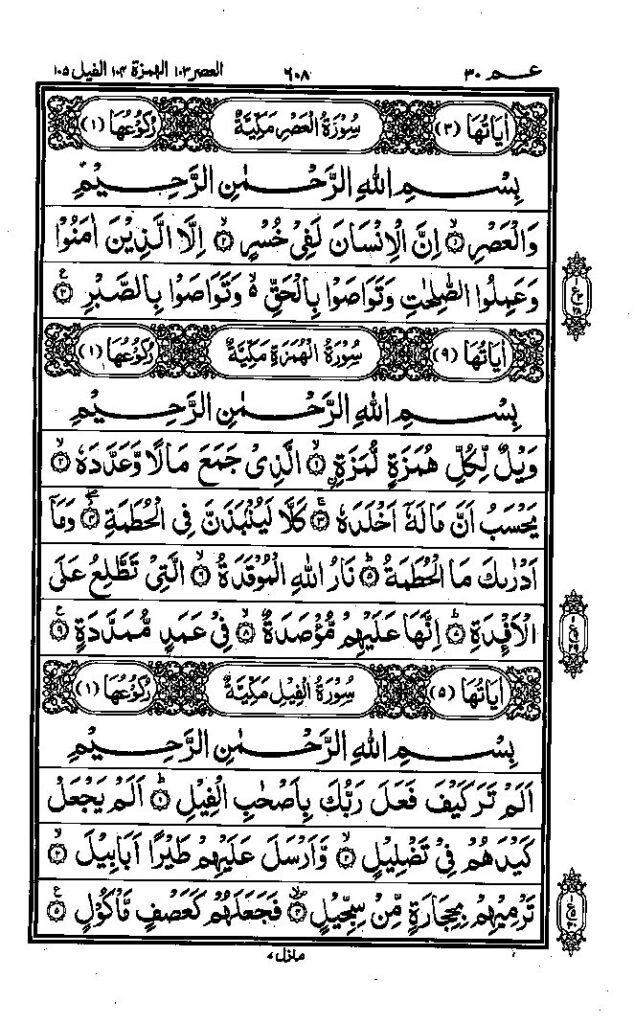 عـم ٣٠ ٦٠٨ العصر ١٠٣ الهمزة ١٠٤ الفيل ١٠٥
اٰيَاتُهَا (٣) سُوْرَةُ الْعَصْرِ مَكِّيَّةٌ رُكُوْعُهَا (١)
بِسْمِ اللهِ الرَّحْمٰنِ الرَّحِيْمِ
وَالْعَصْرِ ۙ﴿١﴾ اِنَّ الْاِنْسَانَ لَفِيْ خُسْرٍ ۙ﴿٢﴾ اِلَّا الَّذِيْنَ اٰمَنُوْا
وَعَمِلُوا الصّٰلِحٰتِ وَتَوَاصَوْا بِالْحَقِّ ۙ وَتَوَاصَوْا بِالصَّبْرِ ﴿٣﴾ ع
اٰيَاتُهَا (٩) سُوْرَةُ الْهُمَزَةِ مَكِّيَّةٌ رُكُوْعُهَا (١)
بِسْمِ اللهِ الرَّحْمٰنِ الرَّحِيْمِ
وَيْلٌ لِّكُلِّ هُمَزَةٍ لُّمَزَةٍ ۙ﴿١﴾ الَّذِيْ جَمَعَ مَالًا وَّعَدَّدَهٗ ۙ﴿٢﴾
يَحْسَبُ اَنَّ مَالَهٗٓ اَخْلَدَهٗ ۚ﴿٣﴾ كَلَّا لَيُنْۢبَذَنَّ فِي الْحُطَمَةِ ﴿٤﴾ وَمَآ
اَدْرٰىكَ مَا الْحُطَمَةُ ؕ﴿٥﴾ نَارُ اللهِ الْمُوْقَدَةُ ۙ﴿٦﴾ الَّتِيْ تَطَّلِعُ عَلَى
الْاَفْـِٕدَةِ ؕ﴿٧﴾ اِنَّهَا عَلَيْهِمْ مُّؤْصَدَةٌ ۙ﴿٨﴾ فِيْ عَمَدٍ مُّمَدَّدَةٍ ﴿٩﴾ ع
اٰيَاتُهَا (٥) سُوْرَةُ الْفِيْلِ مَكِّيَّةٌ رُكُوْعُهَا (١)
بِسْمِ اللهِ الرَّحْمٰنِ الرَّحِيْمِ
اَلَمْ تَرَ كَيْفَ فَعَلَ رَبُّكَ بِاَصْحٰبِ الْفِيْلِ ؕ﴿١﴾ اَلَمْ يَجْعَلْ
كَيْدَهُمْ فِيْ تَضْلِيْلٍ ۙ﴿٢﴾ وَّاَرْسَلَ عَلَيْهِمْ طَيْرًا اَبَابِيْلَ ۙ﴿٣﴾
تَرْمِيْهِمْ بِحِجَارَةٍ مِّنْ سِجِّيْلٍ ﴿٤﴾ فَجَعَلَهُمْ كَعَصْفٍ مَّاْكُوْلٍ ﴿٥﴾ ع
منزل ٧